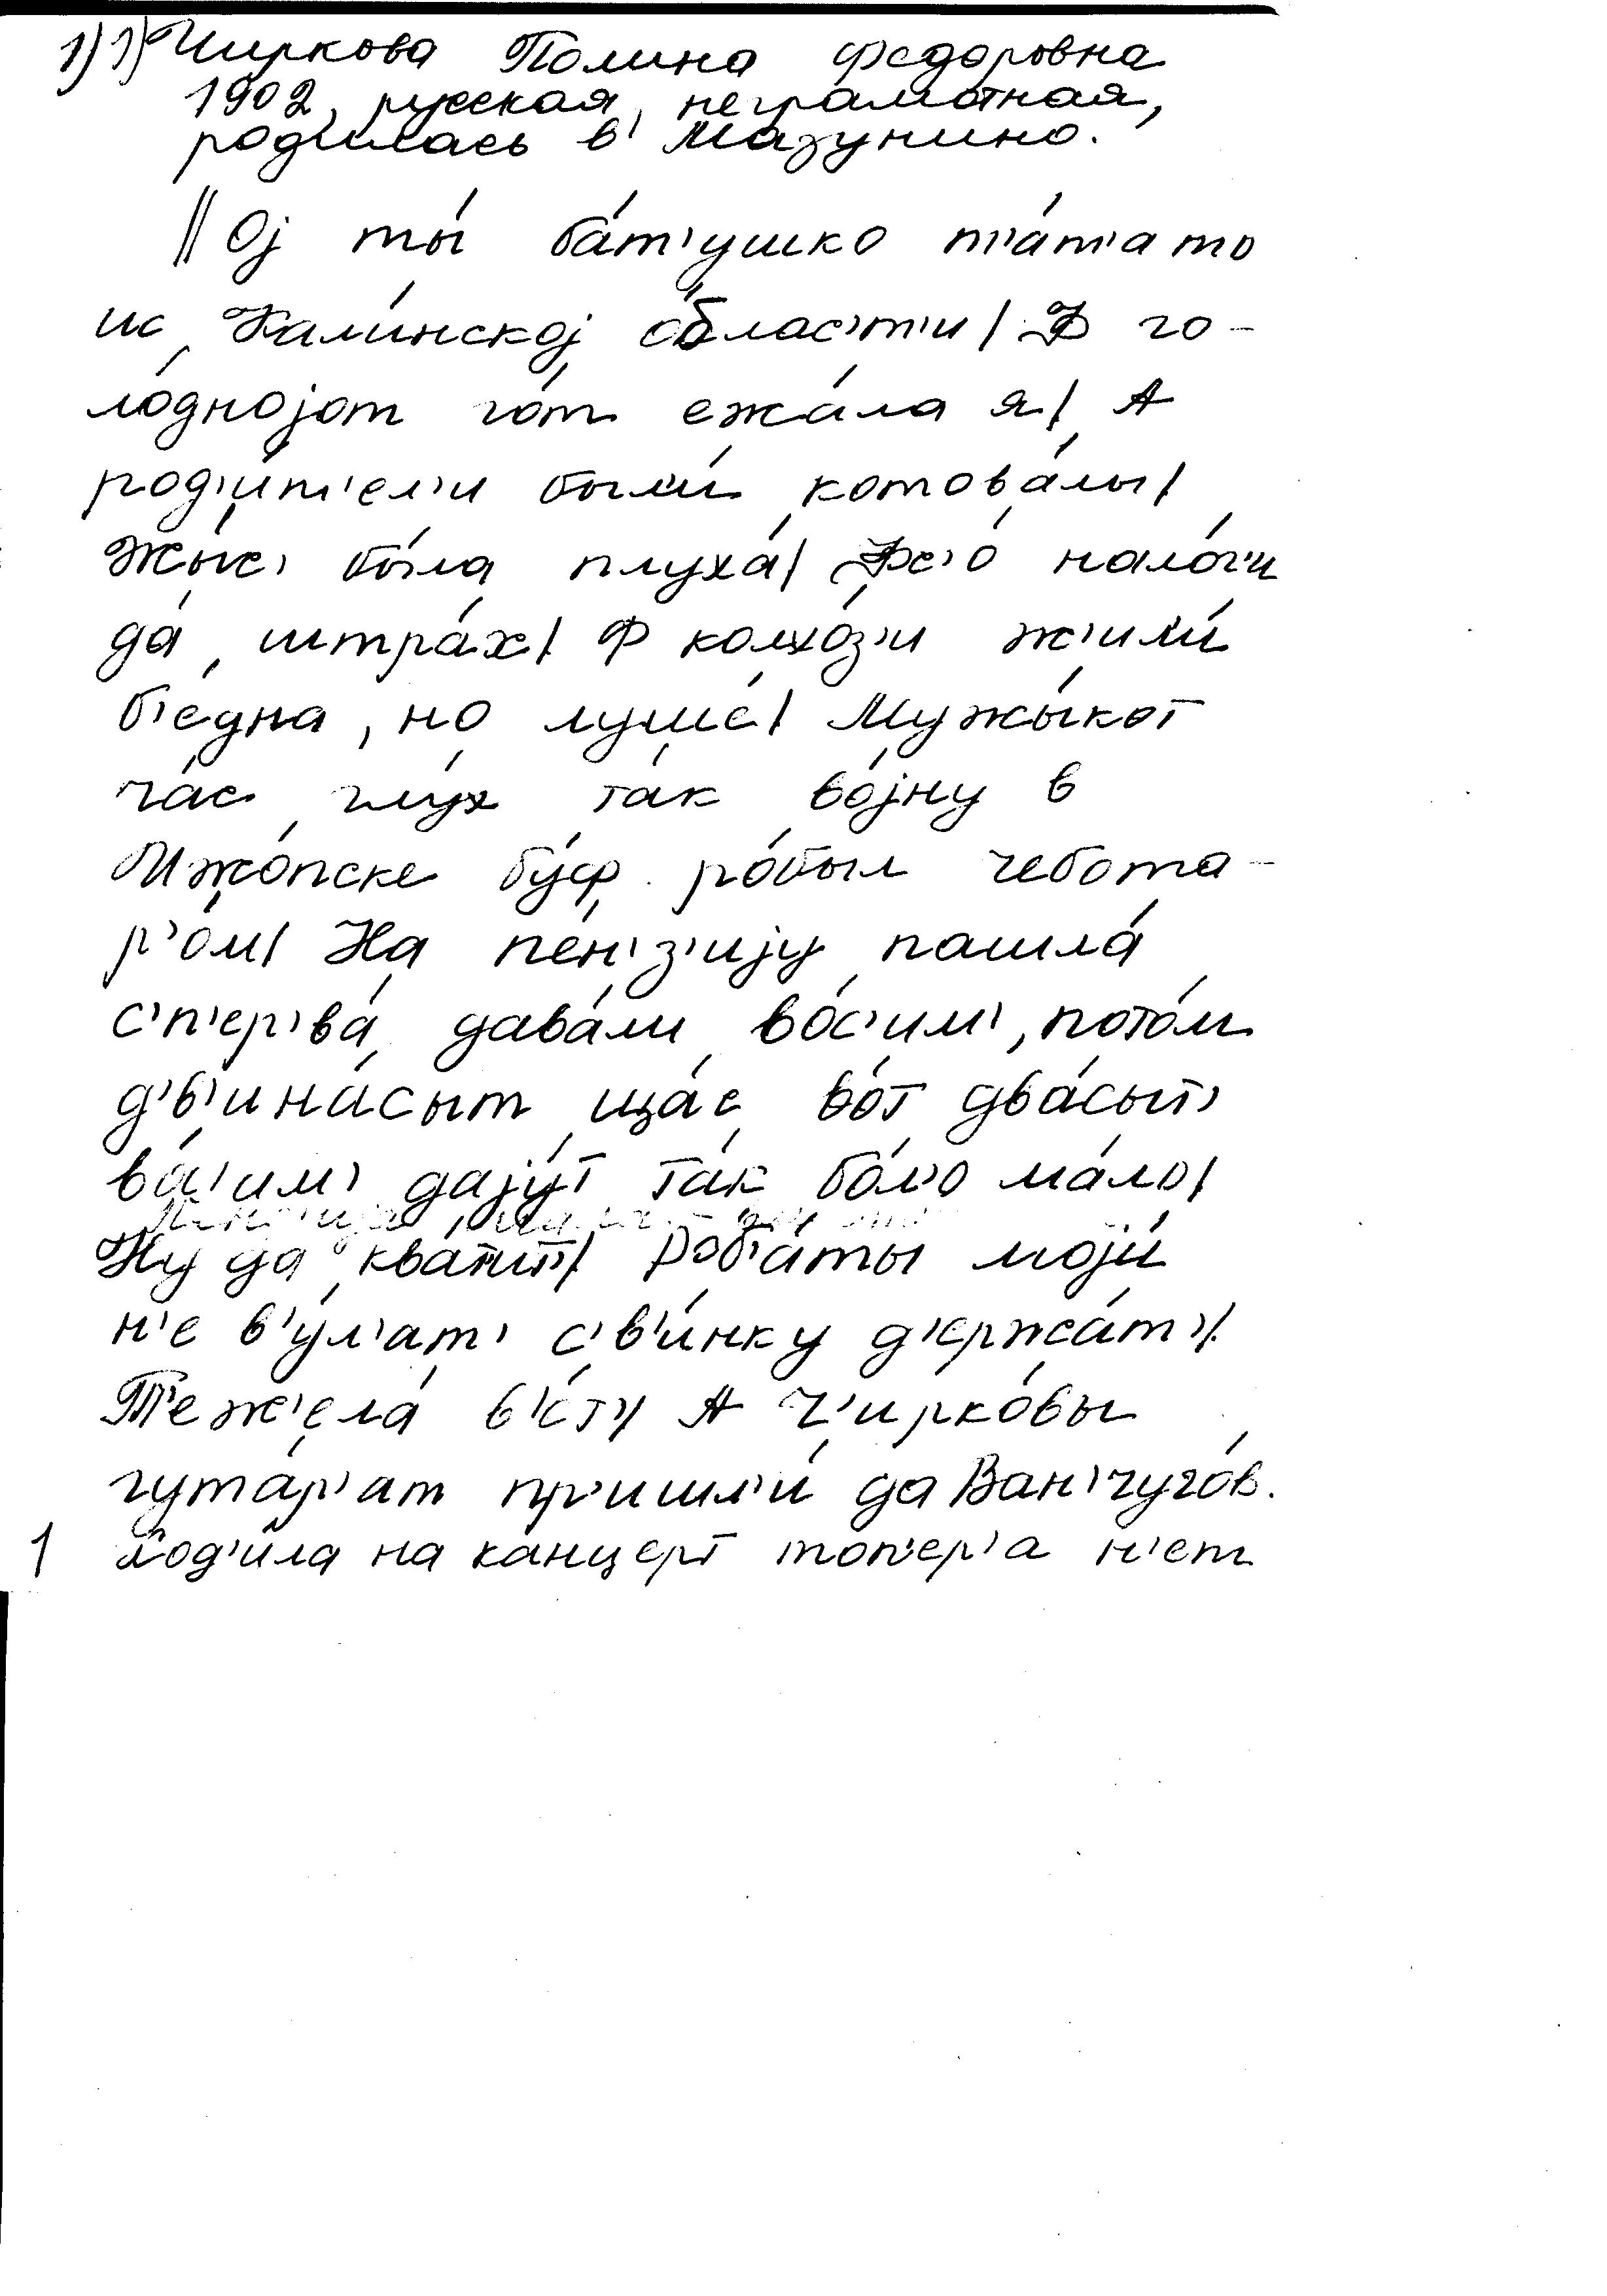 1) 1) Чиркова Полина Федоровна
1902, русская, неграмотная,
родилась в Мазунино.
|| Ој ты́ ба́т'ушко т'а́т'а то
ис Кали́нској о́блас'т'и | Ф го-
ло́дној от го́т ежа́ла я | А
род'и́т'ел'и был'и́ котова́лы |
Жы́с' бы́ла плуха́ | Фс'о́ нало́г'и
да́ штра́х | Ф колхо́з'и ж'ил'и́
б'е́дна, но лу́ше | Мужы́кот
ча́с глу́х та́к во́јну в
Ижо́пске бу́ф ро́был чебота-
р'о́м | На пе́н'з'ију пашла́
с'п'ер'ва́ дава́ли во́с'им', пото́м
д'в'ина́сыт ща́с во́т два́сыт'
ва́с'им' дају́т та́к бо́л'о ма́ло |
Ну да ква́тит | Роб'а́ты моји́
н'е в'у́л'ат' с'в'и́нку д'ержа́т' |
Т'еж'ела́ в'ит' | А Ч'ирко́вы
гута́р'ат пр'ишл'и́ да Ван'чуго́в.
1 Ход'и́ла на канцерт топ'ер'а н'ет